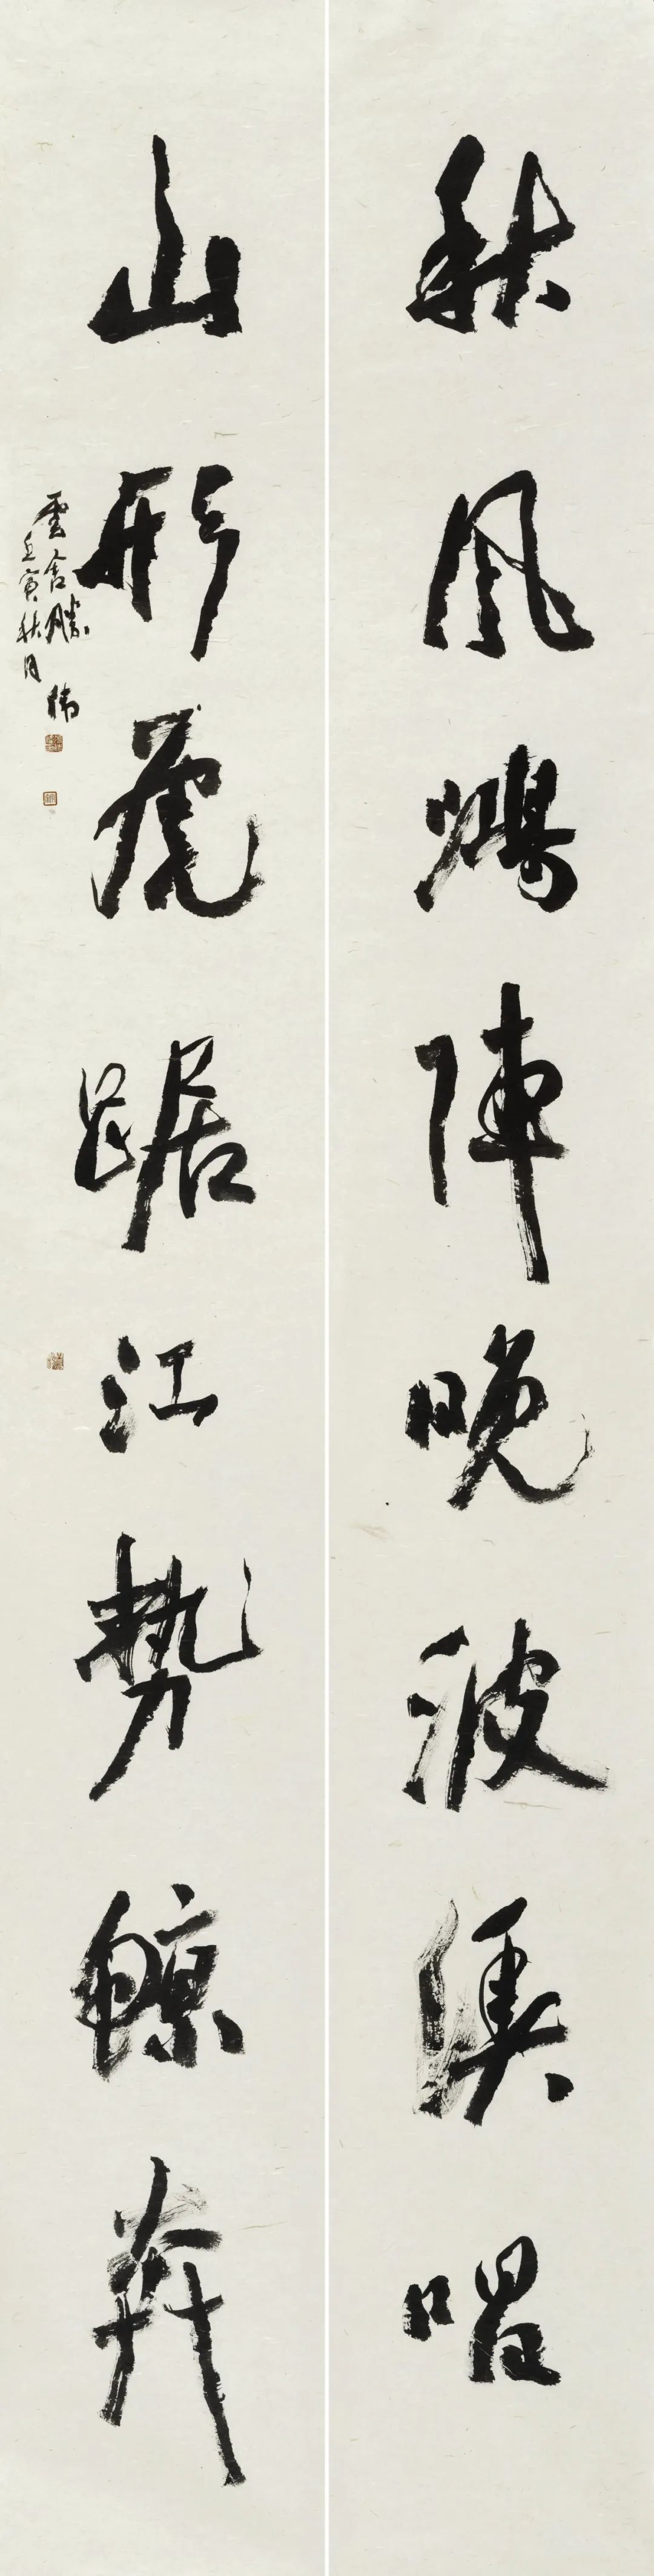 秋風鴻陣晚波漁唱
山形虎踞江勢鯨奔
雲舍勝偉
壬寅秋月